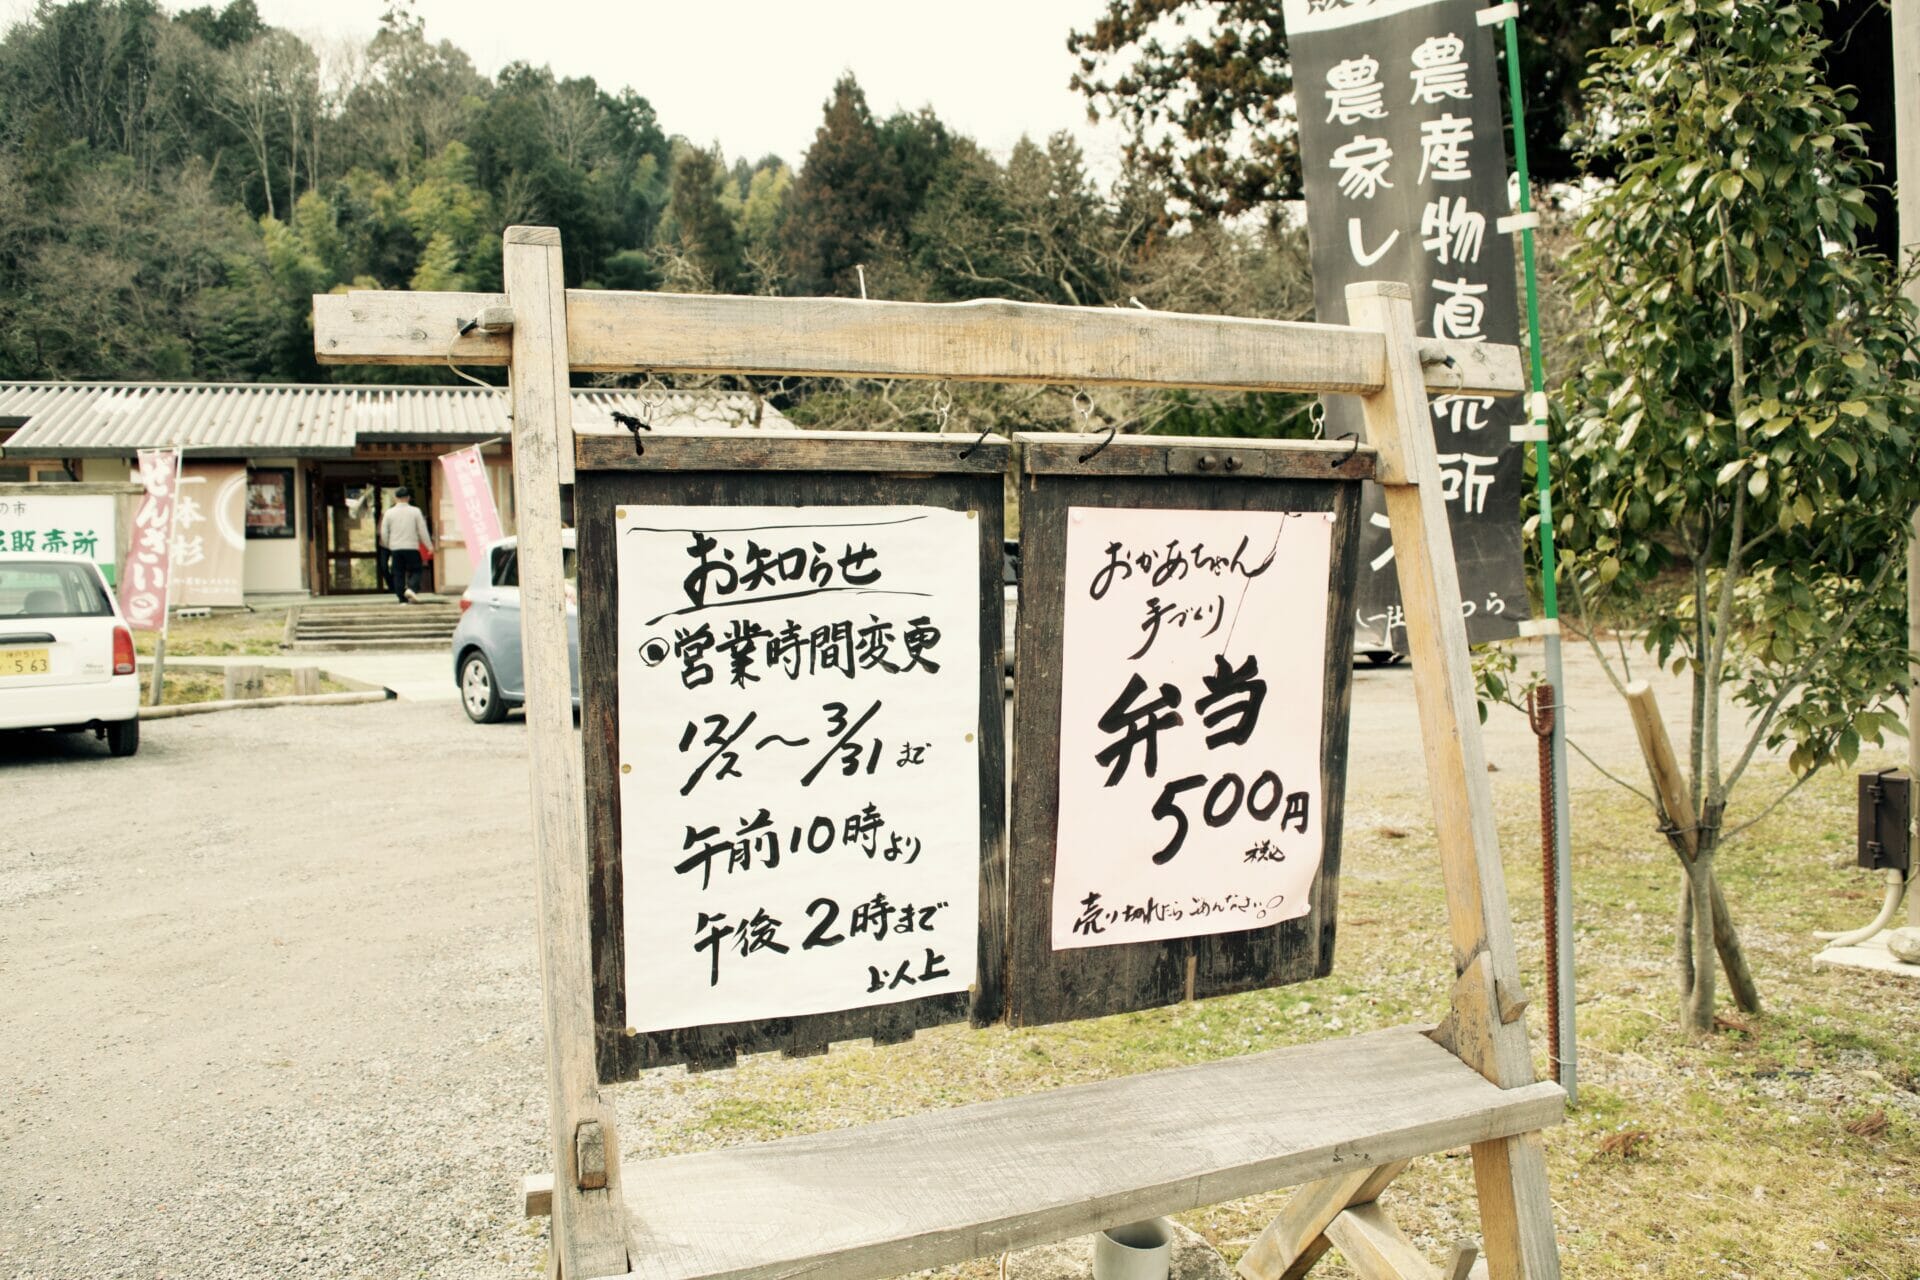 お知らせ
◉営業時間変更
12/2〜3/31まで
午前10時より
午後2時まで
以上
おかあちゃん
手づくり
弁当
500円
税込
売り切れたらごめんなさい。
農産物直売所
農家レ
一本杉
ぜんざい
の市
販売所
563